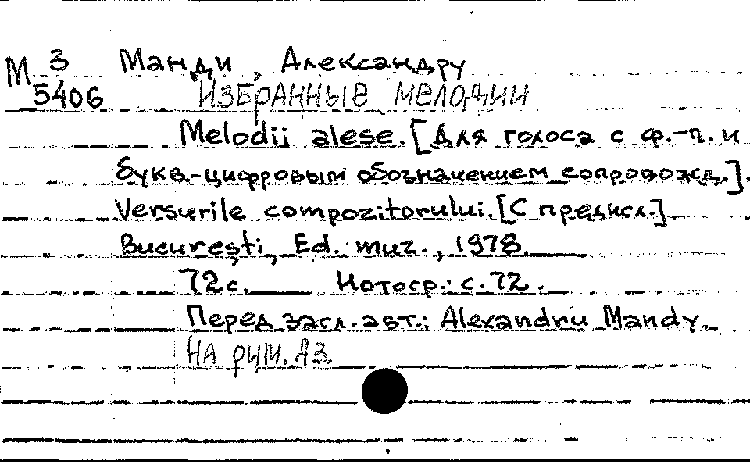 М 3 Манди, Александру
5406 ИЗБРАННЫЕ МЕЛОДИИ
Melodii alese. [Для голоса с ф.-п. и
букв.-цифровым обозначением сопровожд.].
Versurile compozitorului. [С предисл.]
Bucureşti, Ed. muz., 1978.
72 с. Нотогр.: с. 72.
Перед загл. авт.: Alexandru Mandy.
НА РУМ. ЯЗ.